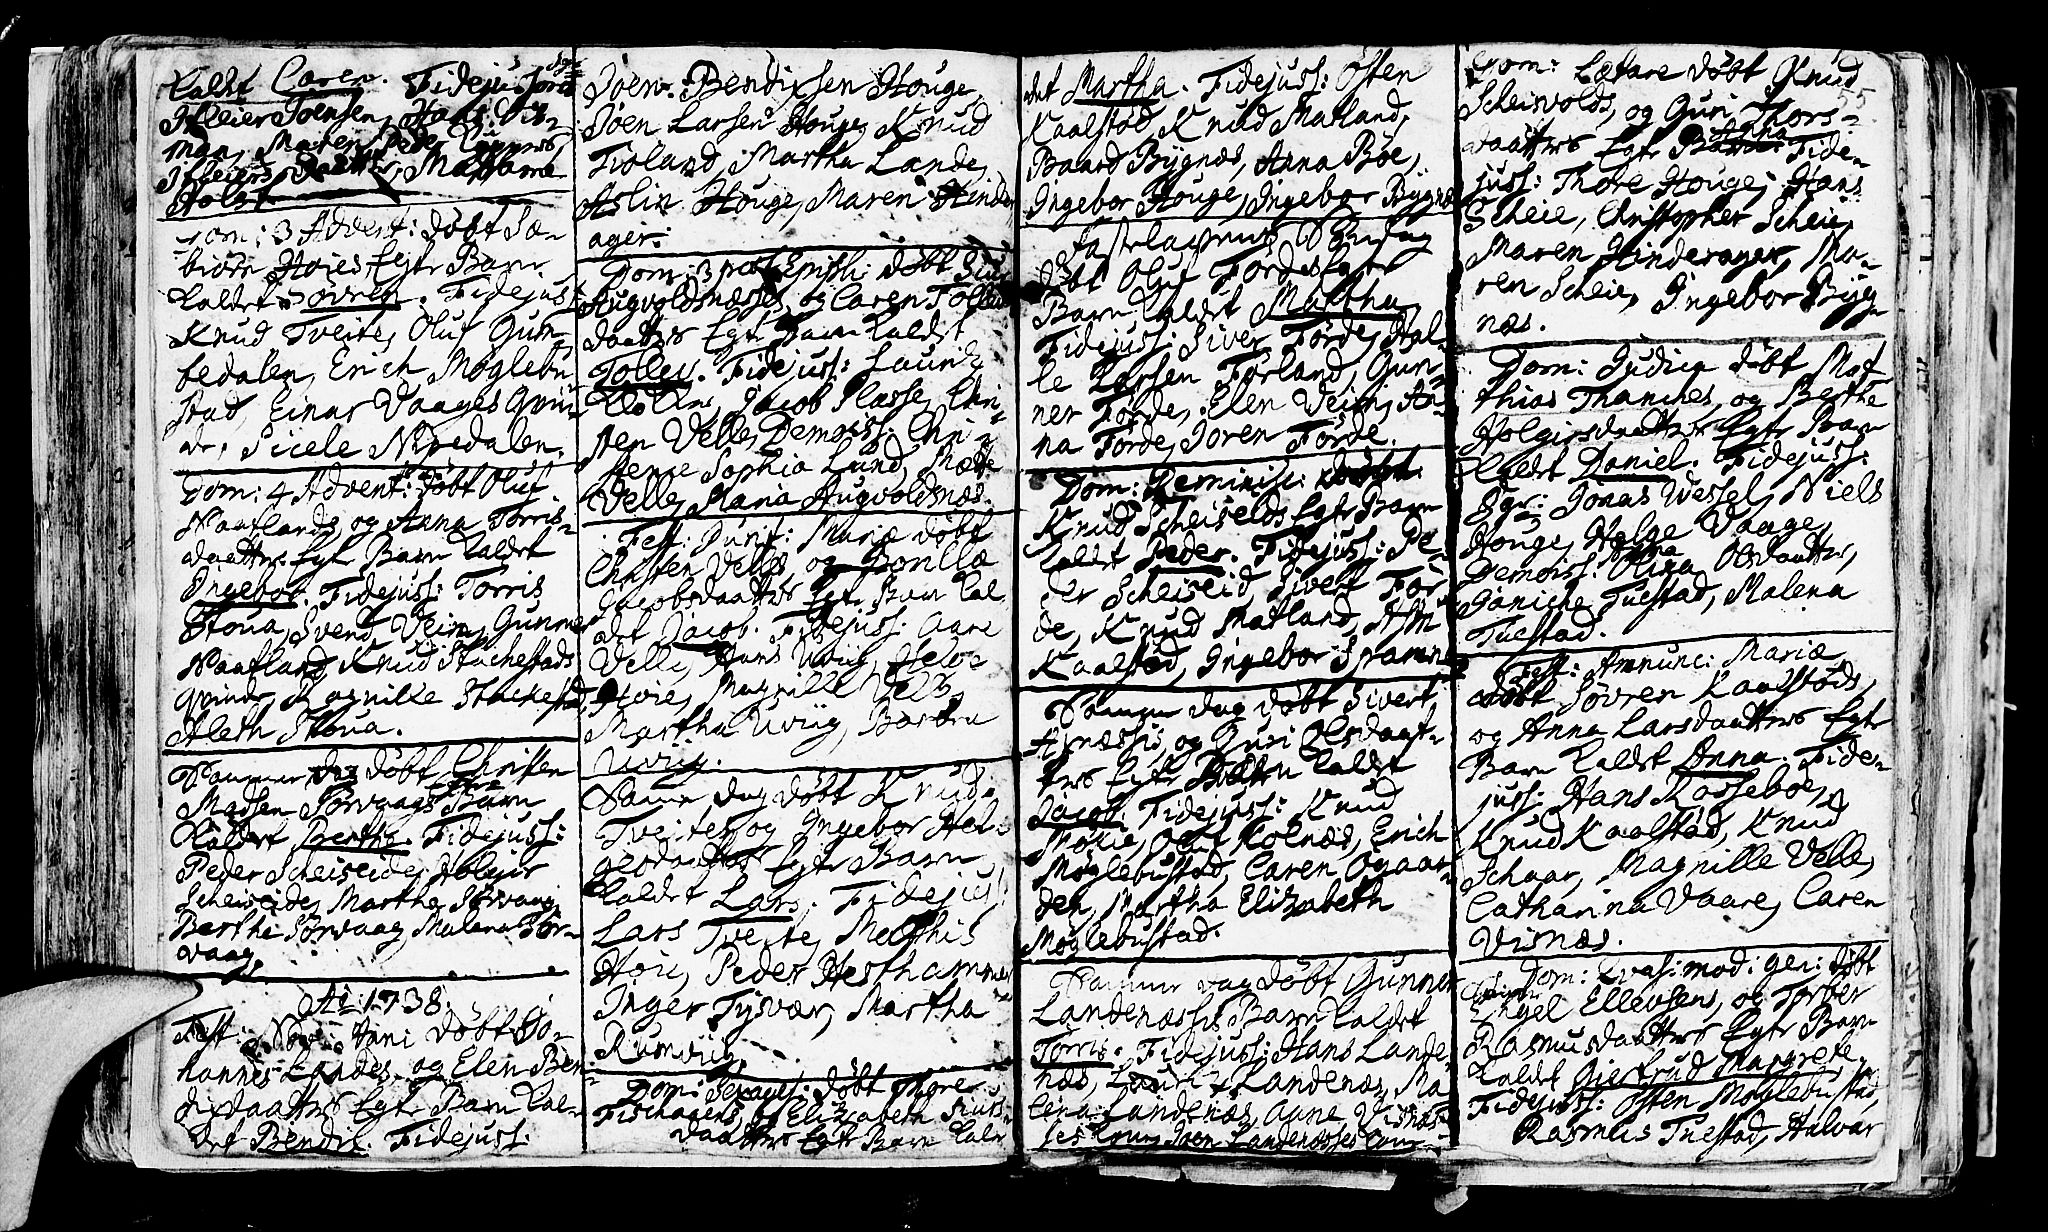 kaldt Caren. Fideju: Sgr:
Meier Joensen, Hans
man, Maren Peder
Meiers Daatter, Madame
Holst.
Dom: 3 Advent: døbt Sæ-
biørn Høies Egte Barn
kaldet Søvren. Fidejuss:
Knud Tveite, Oluf Gun-
bedalen, Erich Møglebu-
stad, Einar Vaages Qvin-
de, Sicele Nipedalen.
Dom: 4 Advent: døbt Oluf
Naaflands, og Anna Torris-
daatters Egte Barn kaldet
Ingebor. Fidejuss: Torris
Stoua, Svend Veim, Gunner
Naafland, Knud Stuchestads
Qvinde, Magnille Stuchestad,
Aleth Stoua.
Samme dag døbt Christen
Madsen Sørvaags Egte Barn
kaldet Berthe. Fidejuss:
Peder Scheiseide, Holgier
Scheiseide, Martha Sørvaag,
Berthe Sørvaag, Malena Sør-
vaag.
Ao 1738.
Fest: Nov: Anni døbt Jo-
hannes Landes og Elen Ben-
dixdaatters Egte Barn kal-
det Bendix. Fidejuss:
Joen Bendixsen Houge,
Joen Larsen Houge, Knud
Fioland, Martha Lande,
Aslin Houge, Maren Hinder-
ager.
Dom: 3 post Epiph: døbt
Augvoldsnæsses og Caren Tollevs
daatters Egte Barn kaldet
Tollev. Fidejuss: Lauridz
Jacob Plasse, Chri-
sten Velle, Demoiss: Chri-
stense Sophia Lund, Mætte
Velle, Maria Augvoldsnæs.
Fest: Purif: Mariæ døbt
Christen Velles og Bonillæ
Jacobsdaatters Egte Barn kal-
det Jacob. Fidejuss: Aane
Velle, Hans Uviig, Helge
Høie, Magnille Velle,
Martha Uviig, Barbra
Uviig.
Samme dag døbt Knud
Tveites og Ingebor Hel-
gesdaatters Egte Barn
kaldet Lars. Fidejuss:
Lars Tveite, Mathis
Høie, Peder Hesthammer
Inger Tysvær, Martha
Rusviig.
Dom: Sexages: døbt Thore
Fischagers og Elizabeth Siurs-
daatters Egte Barn kal-
det Martha. Fidejuss: Østen
Kaalstød, Knud Matland,
Baard Bygnæs, Anna Bøe,
Ingebor Houge, Ingebor Bygnæs
Fastelavens Søndag
døbt Oluf Førdes Egte
Barn kaldet Martha.
Fidejuss: Siver Førde, Hal-
le Larsen Førland, Gun-
ner Førde, Elen Veim, An-
na Førde, Joren Førde.
Dom: Reminisc: døbt
Knud Scheiselds Egte Barn
kaldet Peder. Fidejuss: Pe-
der Scheiseid, Sivert Før-
de, Knud Matland, Asm:
Kaalstød, Ingebor Spanne
Samme dag døbt Sivert
Asnæssis, og Guri Olsdaat-
ters Egte Barn kaldet
Jacob. Fidejuss: Knud
Støkie, Oluf Kolnæs, Erich
Møglebustad, Caren Ogaar-
den, Martha Elizabeth
Møglebustad.
Samme dag døbt Gunner
Landenæssis Barn kaldet
Torris. Fidejuss: Hans Lande-
næs, Lauridz Landenæs, Ma-
lena Landenæs, Aane Visnæs-
ses Qvin: Joen Landenæsses Qvin:
Dom: Lætare døbt Knud 55
Scheisvolds, og Guri Thors-
daatters Egte Barn Anna Fide-
juss: Thore Houge, Hans
Scheie, Christopher Scheie,
Maren Hinderager, Ma-
ren Scheie, Ingebor Byg-
næs.
Dom: Judica døbt Mat-
thias Thanches, og Berthe
Holgirsdaatters Egte Barn
kaldet Daniel. Fidejuss:
Sgr: Jonas Wessel, Niels
Houge, Helge Vaage,
Demoiss: Olina Olsdaatter,
Janiche Tuestad, Malena
Tuestad.
Fest: Annunc: Mariæ
døbt Søvren Kaalstøds,
og Anna Larsdaatters Egte
Barn kaldet Anna. Fide-
juss: Hans Kosseboe,
Knud Kaalstød, Knud
Schaar, Magnille Velle,
Catharina Vaare, Caren
Visnæs.
Dom: Qvasi mod: gen: døbt
Engel Ellevsens, og Torber
Rasmusdaatters Egte Barn
kaldet Giertrud Margrete,
Fidejuss: Østen Møglebustad,
Rasmus Tuestad, Halvar